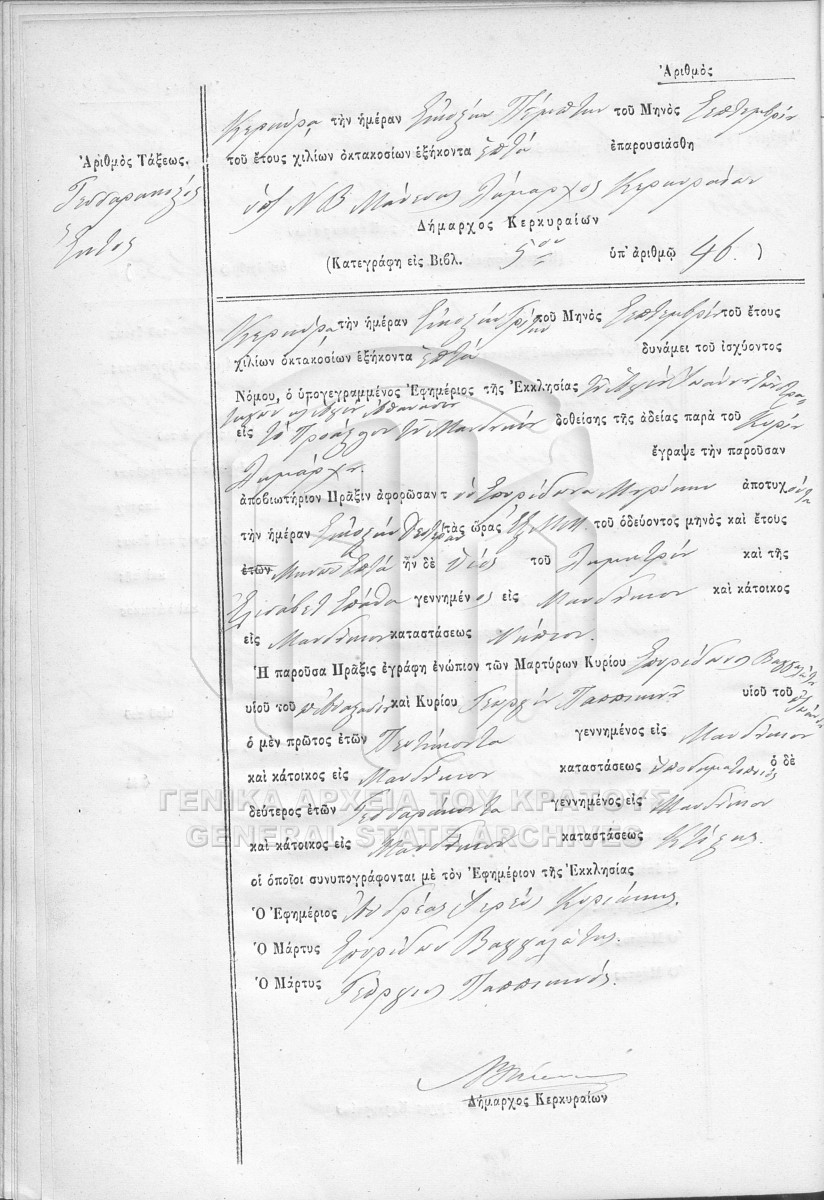 Ἀριθμὸς
Κερκύρα τὴν ἡμέραν Εἰκοστὴν Πέμπτην τοῦ Μηνὸς Σεπτεμβρίου
Ἀριθμὸς Τάξεως.
τοῦ ἔτους χιλίων ὀκτακοσίων ἑξήκοντα ἑπτὰ ἐπαρουσιάσθη
Τεσσαρακοστὸς
Ἕκτος
Ν Β Μάνεσης Δήμαρχος Κερκυραίων
Δήμαρχος Κερκυραίων
(Κατεγράφη εἰς Βιβλ. 5ον ὑπ' ἀριθμῷ 46. )
Κερκύρα τὴν ἡμέραν Εἰκοστὴν Τρίτην τοῦ Μηνὸς Σεπτεμβρίου τοῦ ἔτους
χιλίων ὀκτακοσίων ἑξήκοντα ἑπτὰ δυνάμει τοῦ ἰσχύοντος
Νόμου, ὁ ὑπογεγραμμένος Ἐφημέριος τῆς Ἐκκλησίας
εἰς τὸ Προάστιον τοῦ Μανδουκίου δοθείσης τῆς ἀδείας παρὰ τοῦ Κυρίου
Δημάρχου. ἔγραψε τὴν παροῦσαν
ἀποβιωτήριον Πρᾶξιν ἀφορῶσαν τ ὸν Σπυρίδωνα ἀποτυχόντα
τὴν ἡμέραν Εἰκοστὴν Δευτέραν τὰς ὥρας Ἓξ Μ.Μ. τοῦ ὁδεύοντος μηνὸς καὶ ἔτους
ἐτῶν Μηνῶν Ἑπτὰ ἦν δὲ Υἱὸς τοῦ Δημητρίου καὶ τῆς
Ἐλισάβετ Σπάθα γεννημένος εἰς Μανδούκιον καὶ κάτοικος
εἰς Μανδούκιον καταστάσεως Νήπιον.
Ἡ παροῦσα Πρᾶξις ἐγράφη ἐνώπιον τῶν Μαρτύρων Κυρίου Σπυρίδωνος Βαρφαλάτη
υἱοῦ τοῦ καὶ Κυρίου Γεωργίου Παππικινοῦ υἱοῦ τοῦ
ὁ μὲν πρῶτος ἐτῶν Πεντήκοντα γεννημένος εἰς Μανδούκιον
καὶ κάτοικος εἰς Μανδούκιον καταστάσεως ὑποδηματοποιὸς ὁ δὲ
ΓΕΝΙΚΑ ΑΡΧΕΙΑ ΤΟΥ ΚΡΑΤΟΥΣ
δεύτερος ἐτῶν Τεσσαράκοντα γεννημένος εἰς Μανδούκιον
GENERAL STATE ARCHIVES
καὶ κάτοικος εἰς Μανδούκιον καταστάσεως Κτίστης.
οἱ ὁποῖοι συνυπογράφονται μὲ τὸν Ἐφημέριον τῆς Ἐκκλησίας
Ὁ Ἐφημέριος Ἀνδρέας Ἱερεὺς Κυριάκης.
Ὁ Μάρτυς Σπυρίδων
Ὁ Μάρτυς Γεώργιος
Δήμαρχος Κερκυραίων